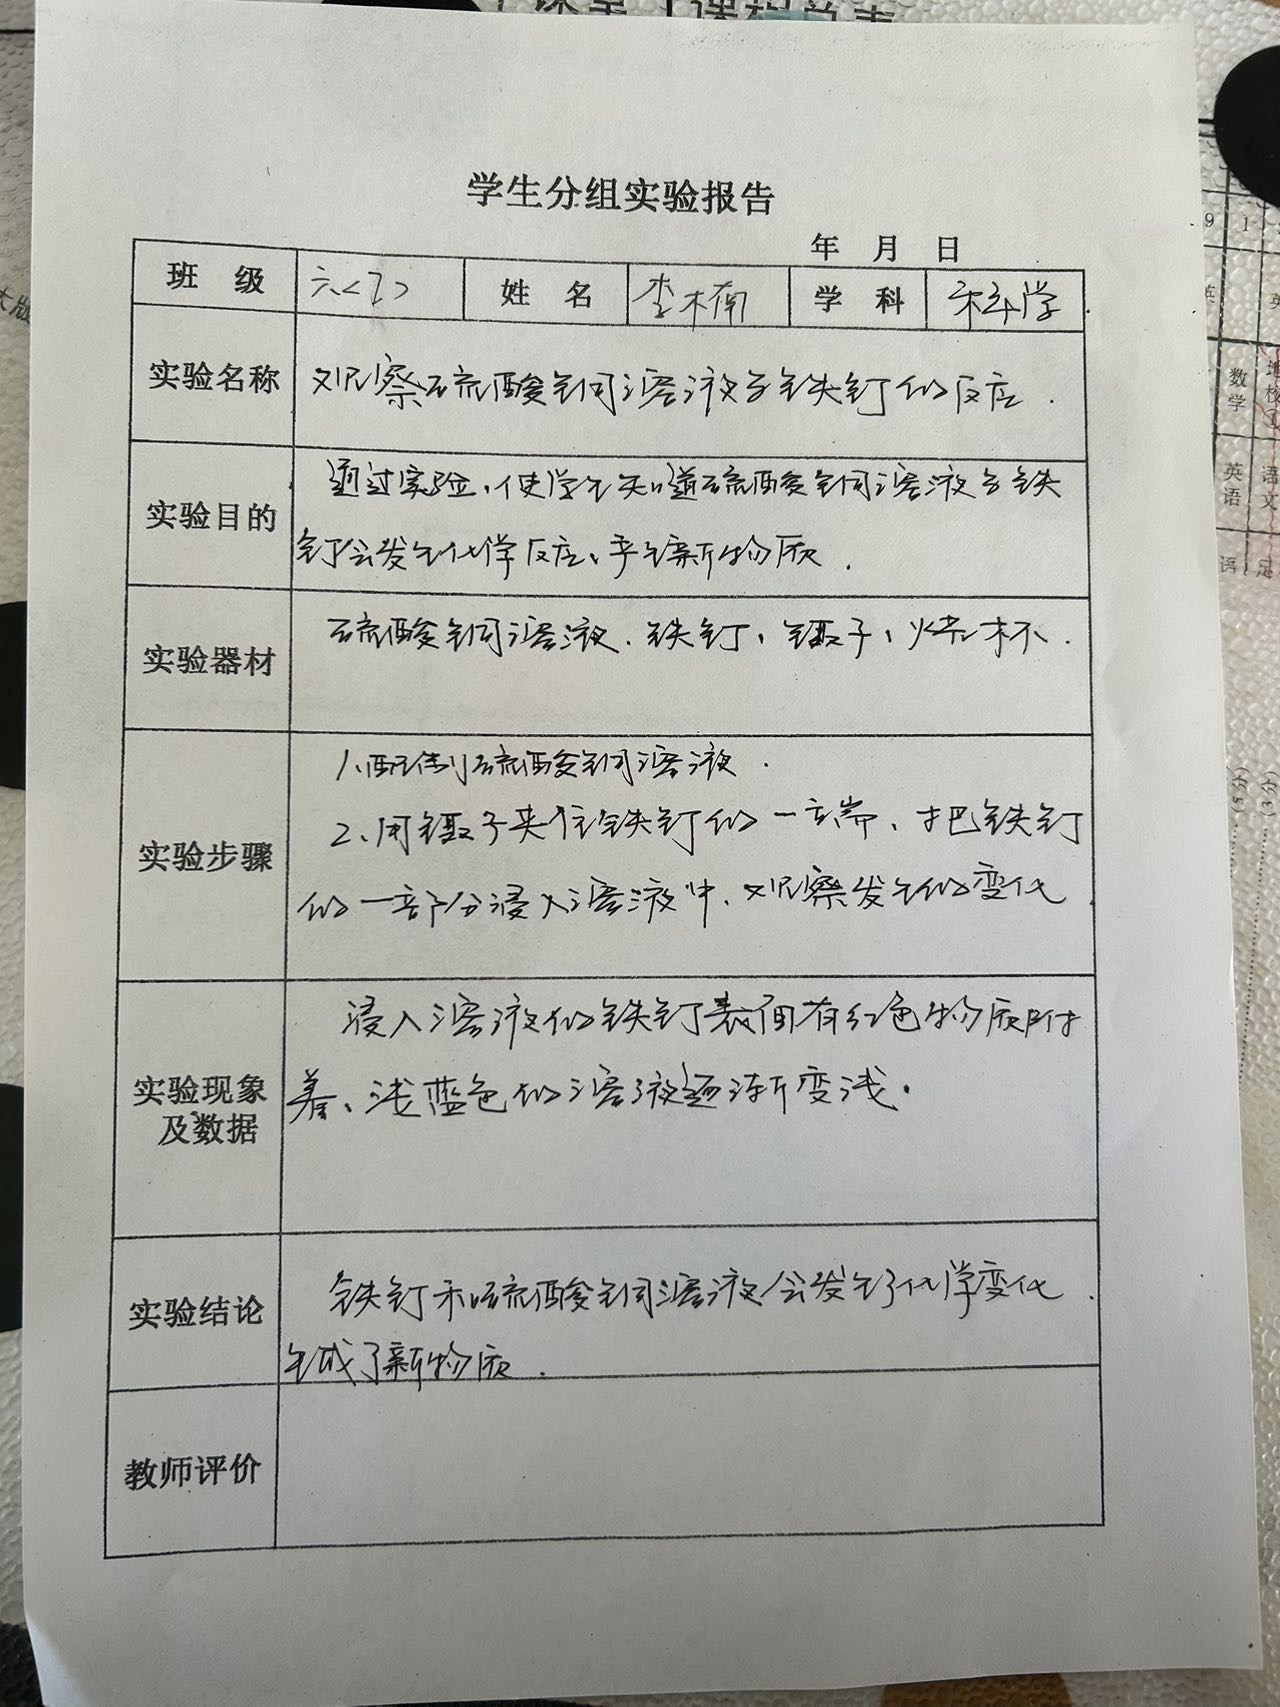 学生分组实验报告
年 月 日
班 级 六<工> 姓 名 李楠 学 科 科学
实验名称 观察硫酸铜溶液与铁钉的反应.
实验目的 通过实验、使学生知道硫酸铜溶液与铁
钉会发生化学反应、产生新物质.
实验器材 硫酸铜溶液、铁钉、镊子、烧杯.
实验步骤 1、配制硫酸铜溶液.
2、用镊子夹住铁钉的一端、把铁钉
的一部分浸入溶液中、观察发生的变化
实验现象
及数据
浸入溶液的铁钉表面有红色物质附
着、浅蓝色的溶液逐渐变浅.
实验结论 铁钉和硫酸铜溶液会发生了化学变化.
生成了新物质.
教师评价
数学
英语
语文
(5分)
(3分)